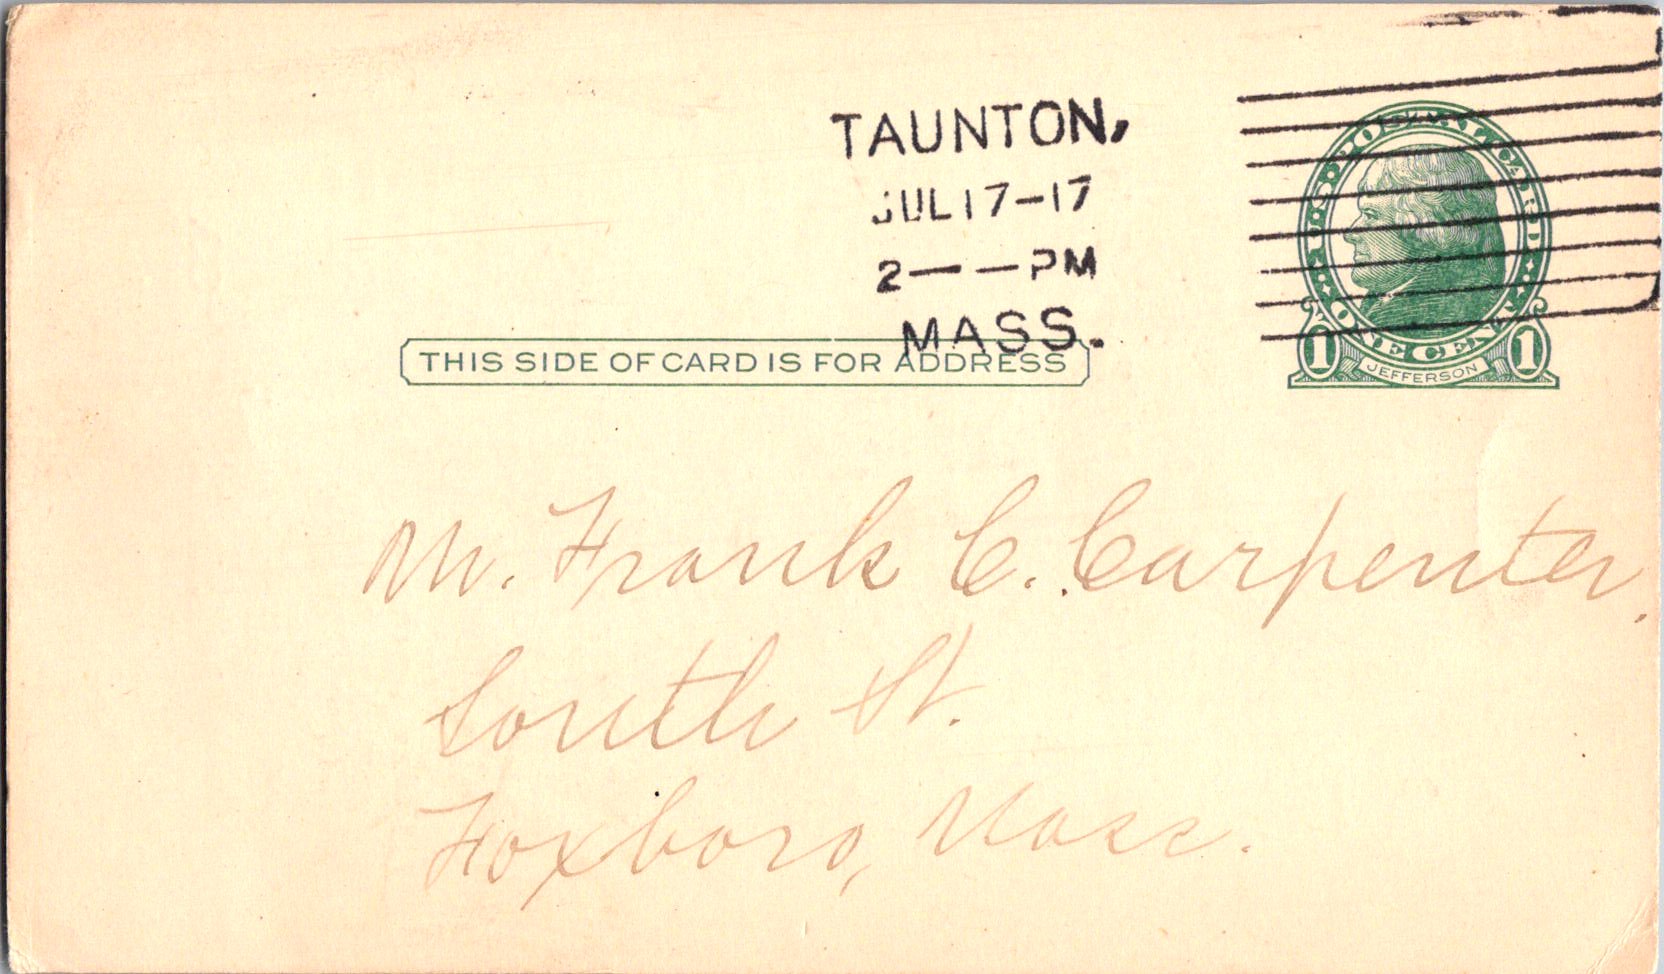 TAUNTON,
JUL 17-17
2— —PM
MASS.
U·S·POSTAL CARD
ONE CENT
1 JEFFERSON 1
THIS SIDE OF CARD IS FOR ADDRESS
M. Frank C. Carpenter,
South St.
Foxboro, Mass.